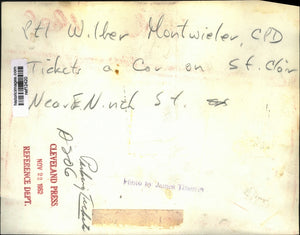 Ptl Wilber Montwieler, CPD
Tickets a Car on St. Clair
Near E. Ninth St.
CLEVELAND PRESS
NOV 22 1952
REFERENCE DEPT.
A206
Parking
Photo by James